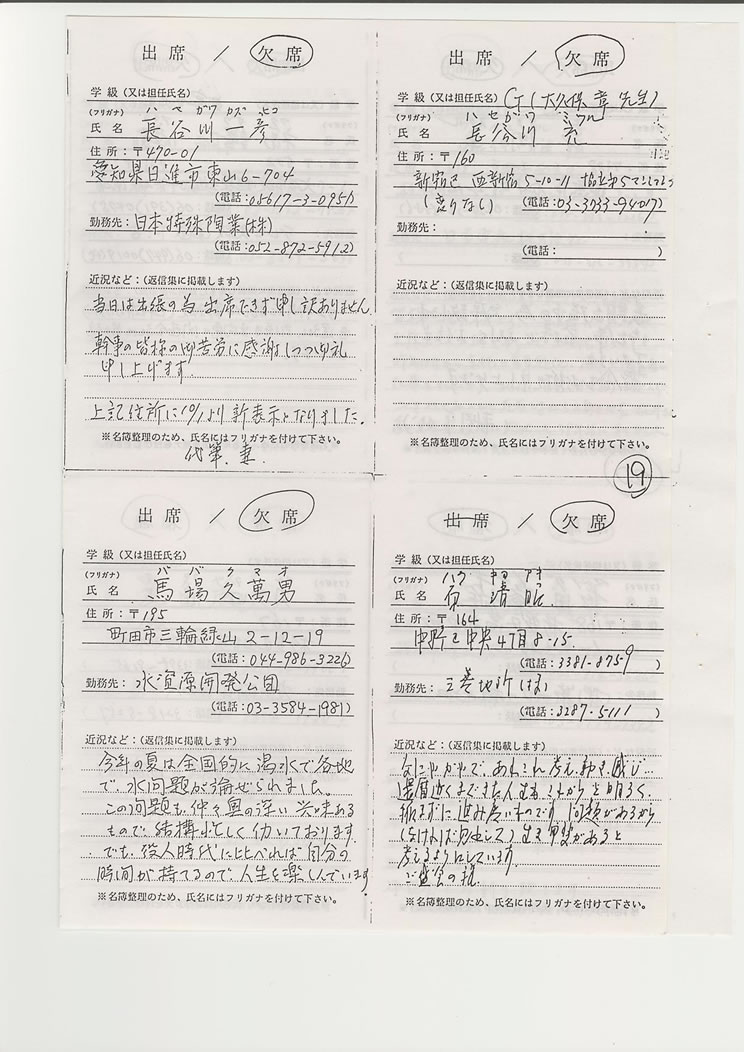 出席 ／ 欠席
学級（又は担任氏名）
(フリガナ) ハセガワ カズヒコ
氏名 長谷川一彦
住所：〒470-01
愛知県日進市東山6-704
(電話：05617-3-0956)
勤務先：日本特殊陶業(株)
(電話：052-872-5912)
近況など：（返信集に掲載します）
当日は出張の為 出席できず申し訳ありません
幹事の皆様の御苦労に感謝しつつ御礼
申し上げます
上記住所に10/1より新表示となりました.
※名簿整理のため、氏名にはフリガナを付けて下さい。
代筆. 妻
出席 ／ 欠席
学級（又は担任氏名） G(大久保 章 先生)
(フリガナ) ハセガワ ミツル
氏名 長谷川 充
住所：〒160
新宿区 西新宿 5-10-11
(変りなし) (電話：03-3033-9407)
勤務先：
(電話： )
近況など：（返信集に掲載します）
※名簿整理のため、氏名にはフリガナを付けて下さい。
19
出席 ／ 欠席
学級（又は担任氏名）
(フリガナ) ババ クマオ
氏名 馬場久萬男
住所：〒195
町田市三輪緑山 2-12-19
(電話：044-986-3226)
勤務先：水資源開発公団
(電話：03-3584-1981)
近況など：（返信集に掲載します）
今年の夏は全国的に渇水で各地
で、水問題が論ぜられました。
この問題も、仲々奥の深い 興味ある
もので、結構忙しく働いております
でも、役人時代に比べれば自分の
時間が持てるので、人生を楽しんでいます.
※名簿整理のため、氏名にはフリガナを付けて下さい。
出席 ／ 欠席
学級（又は担任氏名）
(フリガナ) ハラ キヨアキ
氏名 原 清昭
住所：〒164
中野区中央4丁目8-15
(電話：3381-8759)
勤務先：三菱地所
(電話：3287-5111)
近況など：（返信集に掲載します）
あれこれ考え、動き、感じ…
還暦近くまできた人生も これからを明るく、
進み たいものです. 問題があるから
生き甲斐があると
考えるようにしています.
ご盛会の祝.
※名簿整理のため、氏名にはフリガナを付けて下さい。